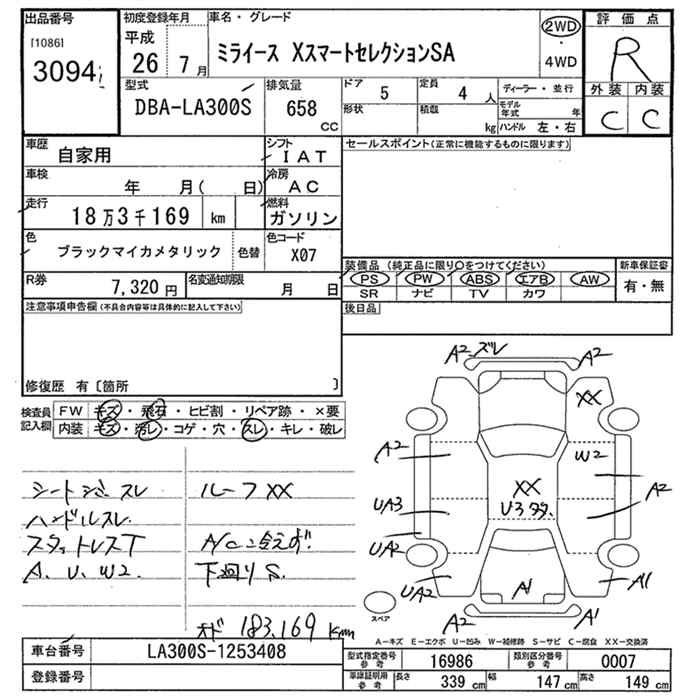 出品番号
[1086]
3094
初度登録年月
平成
26 7月
車名・グレード
ミライース XスマートセレクションSA
2WD
・
4WD
評価点
R
外装 内装
C C
型式
DBA-LA300S
排気量
658
cc
ドア 5
形状
定員 4 人
積載 kg
ディーラー・並行
モデル年式 年
ハンドル 左・右
車歴
自家用
シフト
IAT
車検
年 月( 日)
冷房
AC
走行
18万3千169 km
燃料
ガソリン
色
ブラックマイカメタリック
色替
色コード
X07
R券
7,320円
名変通知期限
月 日
セールスポイント(正常に機能するものに限ります)
装備品(純正品に限り○をつけてください)
PS PW ABS エアB AW
SR ナビ TV カワ
新車保証書
有・無
後日品
注意事項申告欄(不具合内容等は具体的に記入して下さい)
修復歴 有〔箇所 〕
検査員記入欄
FW キズ・飛石・ヒビ割・リペア跡・×要
内装 キズ・汚レ・コゲ・穴・スレ・キレ・破レ
シートシミ スレ
ハンドルスレ
スタットレスT
A. U. W2.
ルーフXX
A/C冷えず.
下廻りS.
オド 183,169 Km
A2 ズレ A2
XX
A2
W2
A2
UA3
XX
U3
UA2
UA2
A1
A1
A2 A1
スペア
A-キズ E-エクボ U-凹み W-補修跡 S-サビ C-腐食 XX-交換済
車台番号
LA300S-1253408
登録番号
型式指定番号参考
16986
類別区分番号参考
0007
車庫証明用参考
長さ 339 cm
幅 147 cm
高さ 149 cm